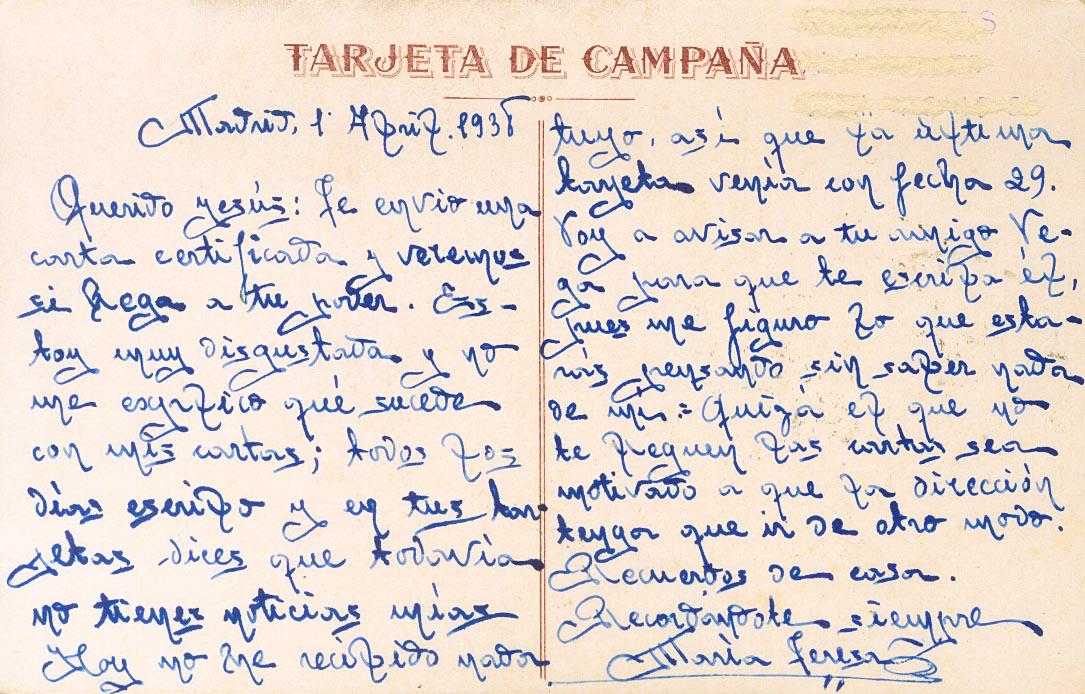 TARJETA DE CAMPAÑA
Madrid, 1 Abril. 1938
Querido Jesús: Te envio una
carta certificada y veremos
si llega a tu poder. Es-
toy muy disgustada y no
me explico qué sucede
con mis cartas; todos los
días escribo y en tus tar-
jetas dices que todavía
no tienes noticias mías
Hoy no he recibido nada
tuyo, así que la última
tarjeta venía con fecha 29.
Voy a avisar a tu amigo Ve-
ga para que te escriba él,
pues me figuro lo que esta-
rás pensando sin saber nada
de mi.= Quizá el que no
te lleguen las cartas sea
motivado a que la dirección
tenga que ir de otro modo.
Recuerdos de casa.
Recordándote siempre
María Teresa